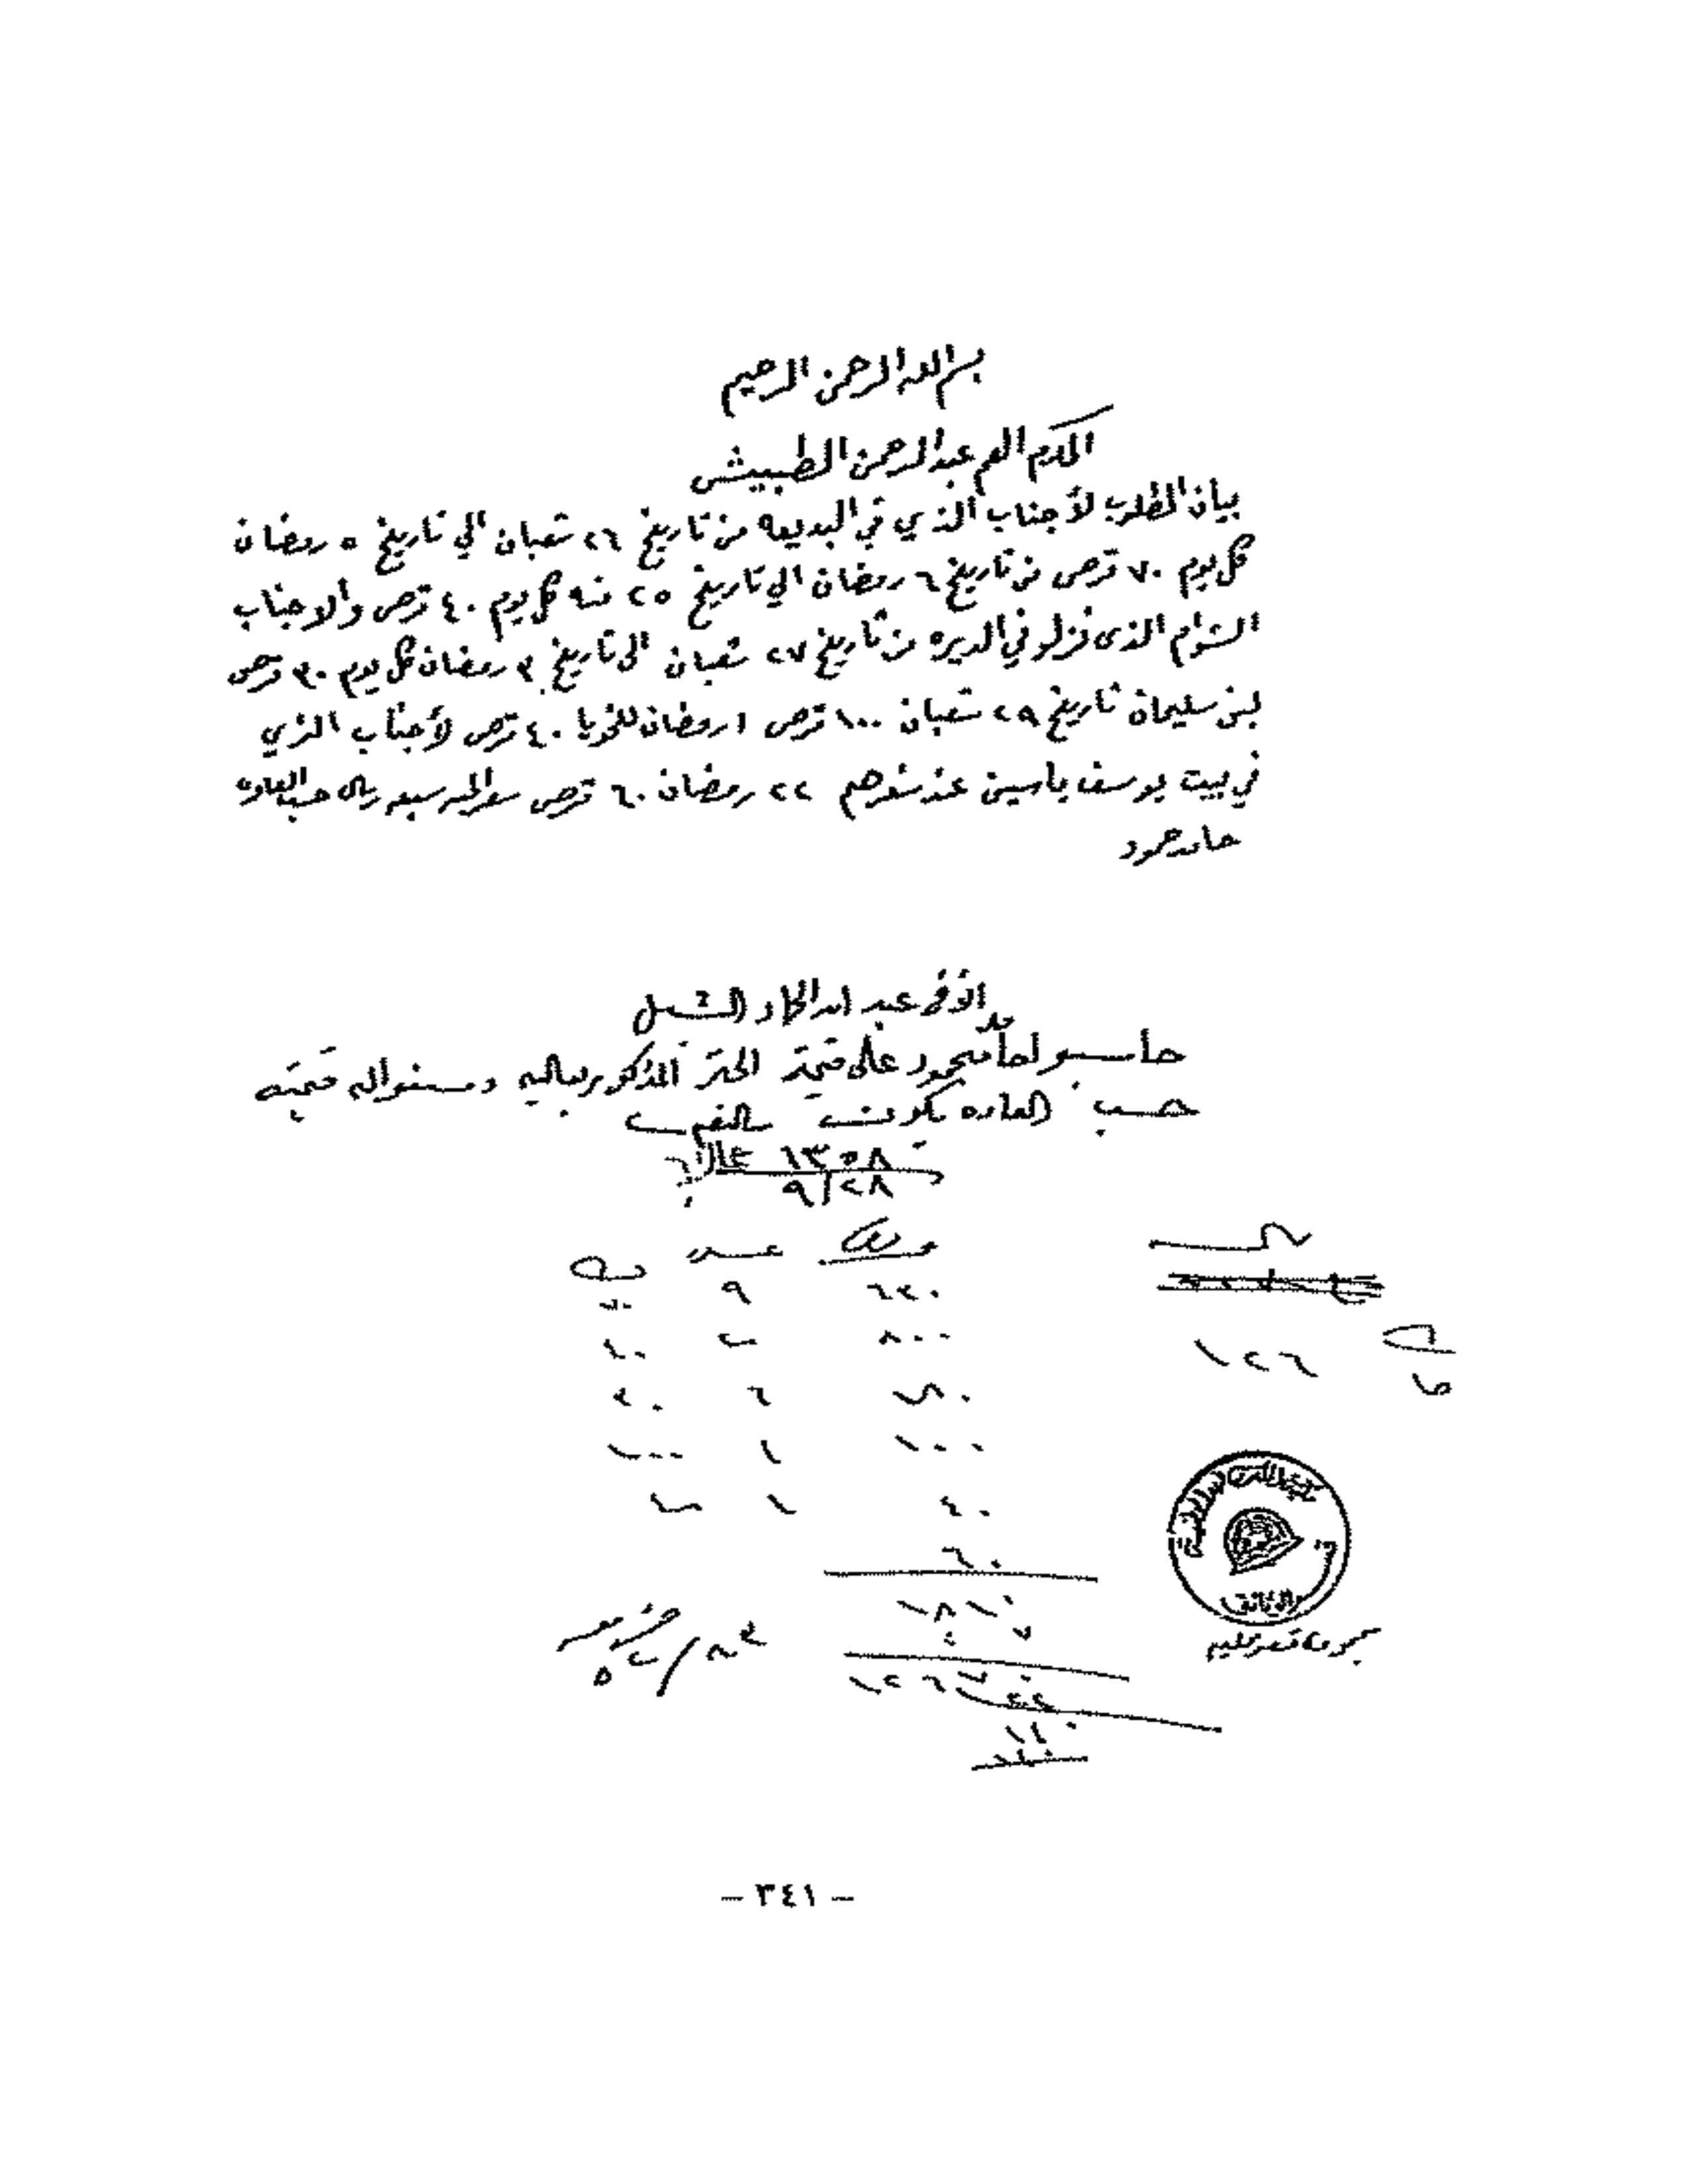 بسم الله الرحمن الرحيم
المكرم العم عبدالرحمن الطبيشي
بيان المطلوب لأجناب الذي في البديعه من تاريخ ٢٦ شعبان الي تاريخ ٥ رمضان
كل يوم ٧٠ قرص من تاريخ ٦ رمضان الي تاريخ ٢٥ منه كل يوم ٤٠ قرص والاجناب
الشوام الذي نزلو في الديره من تاريخ ٢٧ شعبان الى تاريخ ٣ رمضان كل يوم ٣٠ قرص
لبن سليمان تاريخ ٢٩ شعبان ١٠٠ قرص ١ رمضان للخويا ٤٠ قرص لأجناب الذي
في بيت يوسف ياسين عند سفرهم ٢٢ رمضان ٦٠ قرص سعر الميه سبعه ريال حسب العاده
حامد حمود
الأفخم عبد الله الشبل
حاسبو حامد حمود على قيمة الخبز المذكور بعاليه قيمته
حسب العاده يكون
١٣٥٨
٩/٢٨
عدد
٩ ٧٠
٨٠٠
٦ ٣٠
١٠٠ ١ ١٠٠
٤٠ ١
٦٠
١٨١٠
٧
١٢٦٧٠
١٢٦
الوثائق
– ٣٤١ –